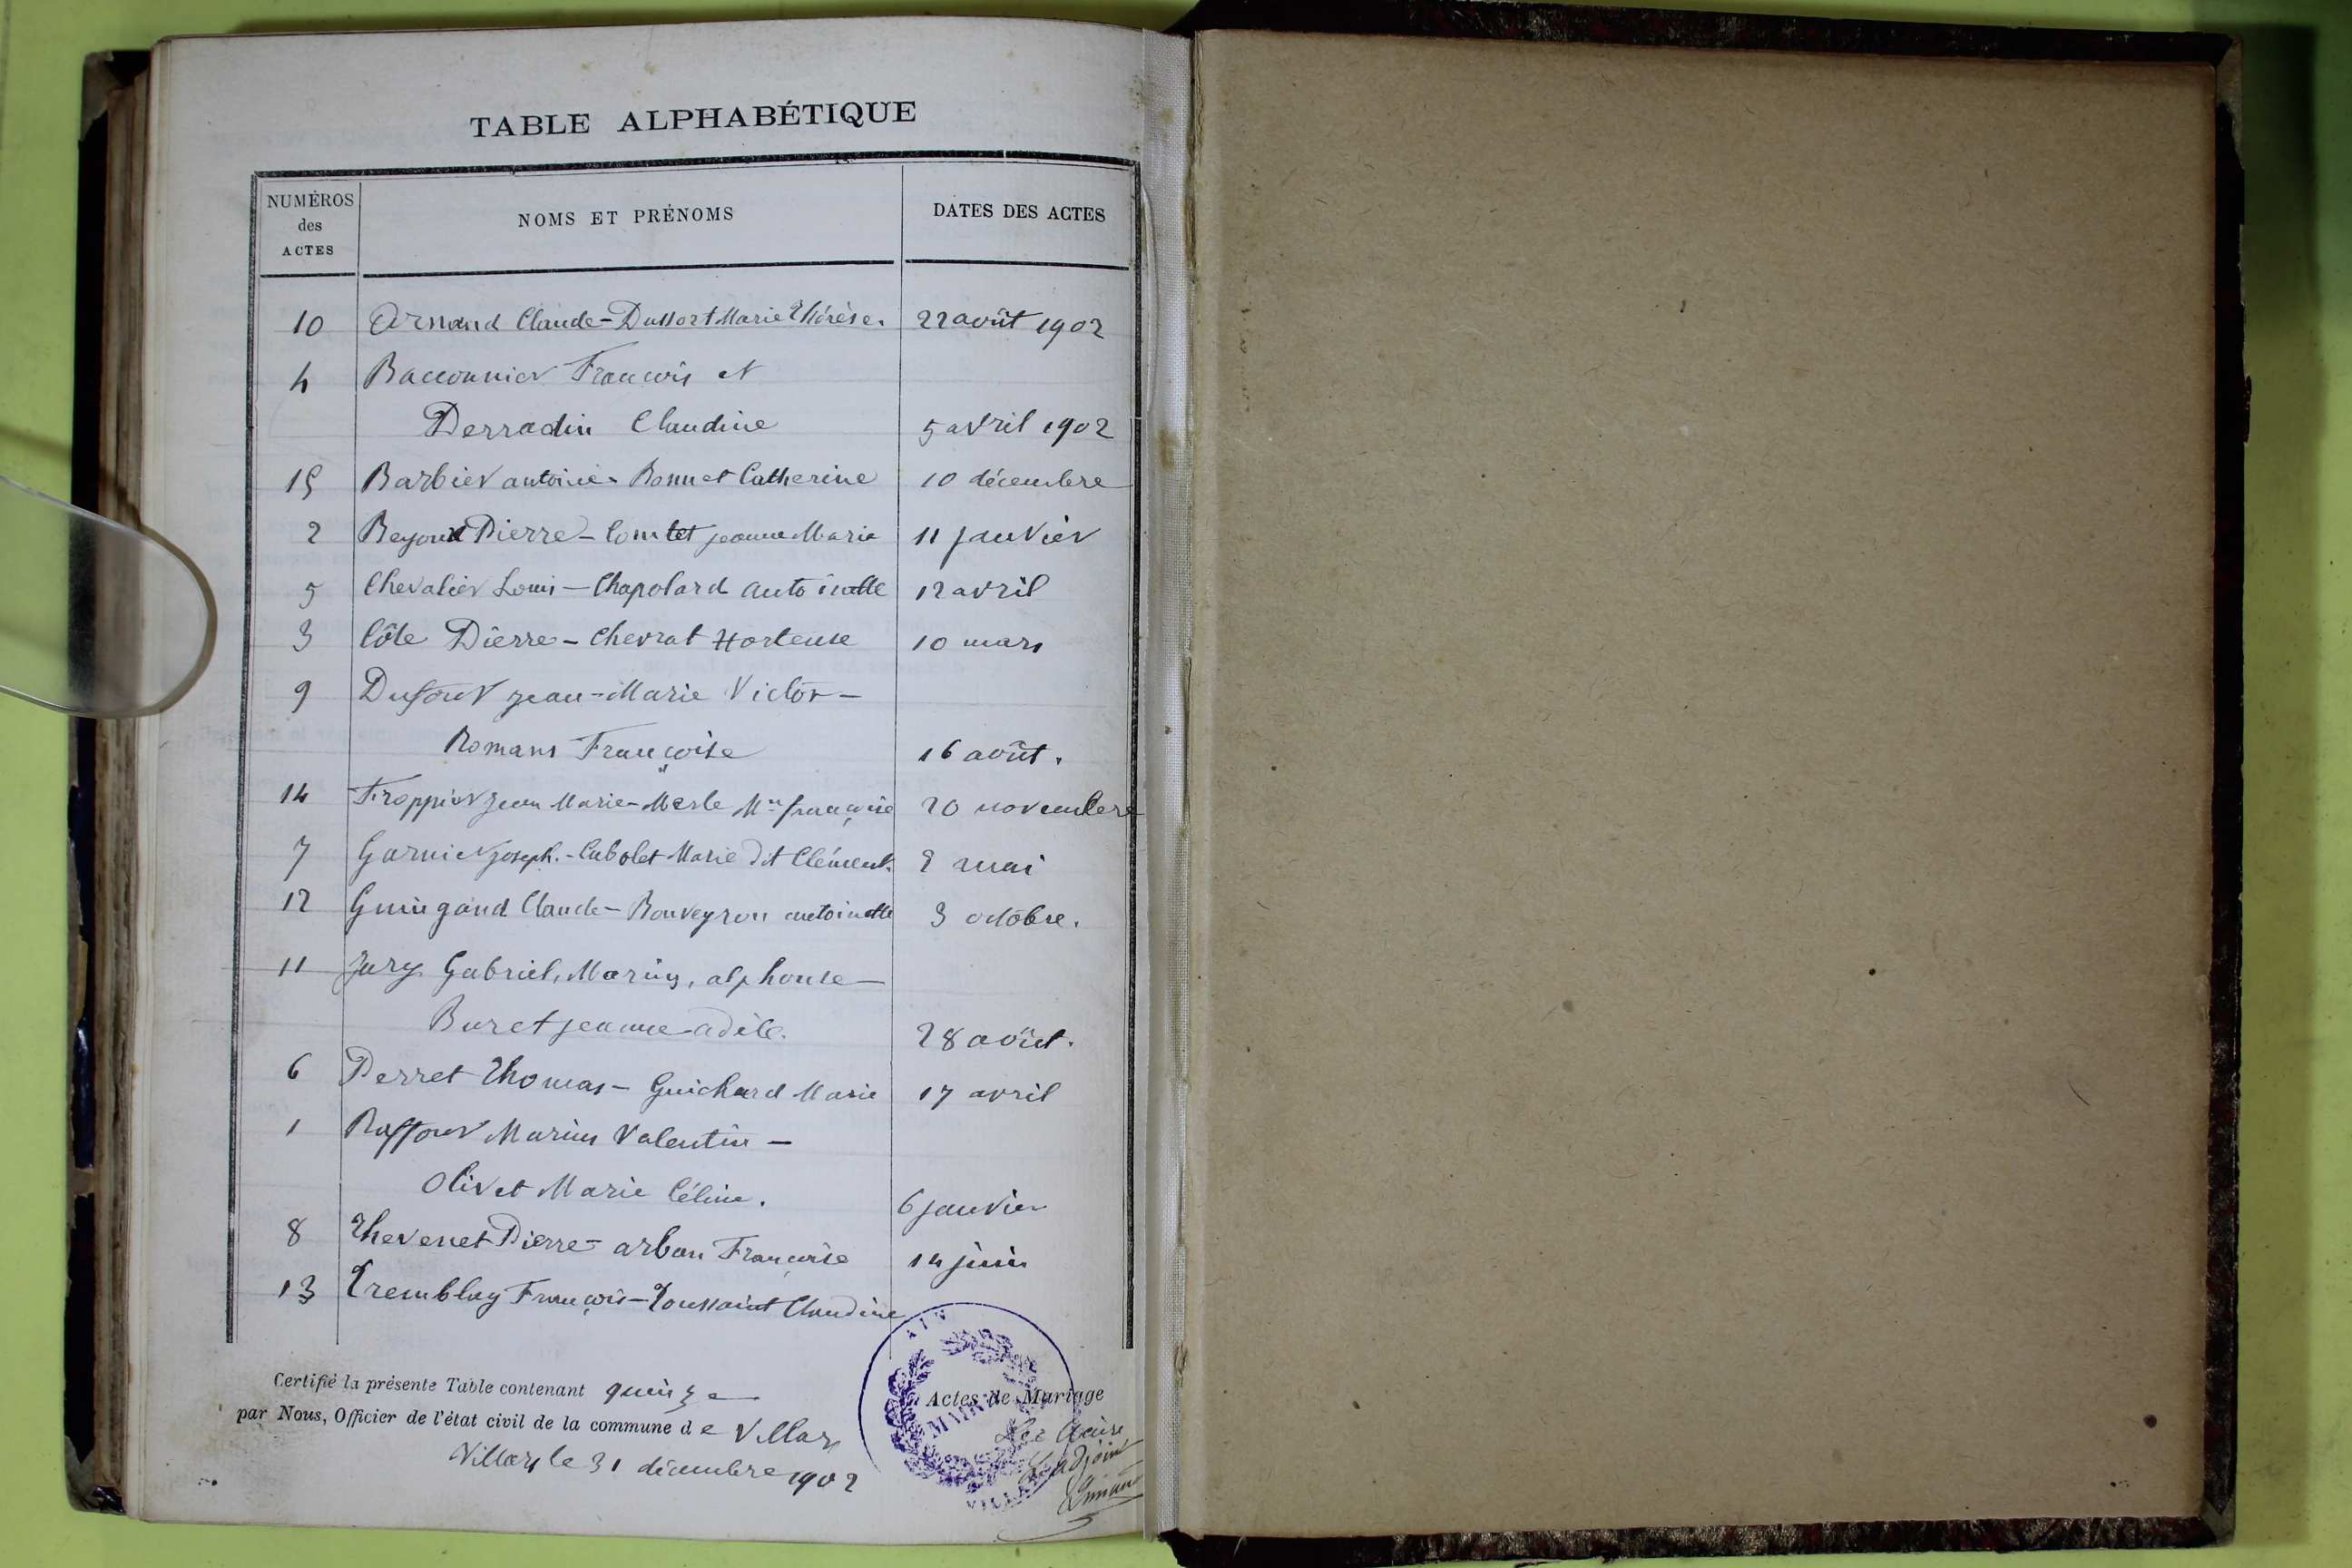 TABLE ALPHABÉTIQUE
NUMÉROS des ACTES NOMS ET PRÉNOMS DATES DES ACTES
10 Arnand Claude - Dussort Marie Thérèse. 22 août 1902
4 Bacconnier François et
Perradin Claudine 5 avril 1902
15 Barbier antoine - Bonnet Catherine 10 décembre
2 Pierre - Comtet jeanne Marie 11 janvier
5 Chevalier Louis - Chapolard antoinette 12 avril
3 Côte Pierre - Chevrat Hortense 10 mars
9 Dufour jean-Marie Victor -
Romans Françoise 16 août.
14 Froppier jean Marie - Merle Mie françoise 20 novembre
7 Garnier joseph. - Cubolet Marie dit Clément. mai
12 Guingand Claude - Bouveyron antoinette 3 octobre.
11 Jury Gabriel, Marius, alphonse -
Buret jeanne adèle. 28 août.
6 Perret Thomas - Guichard Marie 17 avril
1 Raffour Marius Valentin -
Olivet Marie Céline. 6 janvier
8 Thevenet Pierre - arban Françoise 14 juin
13 Tremblay François - Toussaint Claudine
Certifié la présente Table contenant quinze Actes de Mariage
par Nous, Officier de l'état civil de la commune de Villars
Villars le 31 décembre 1902
L'adjoint
AIN
MAIRIE